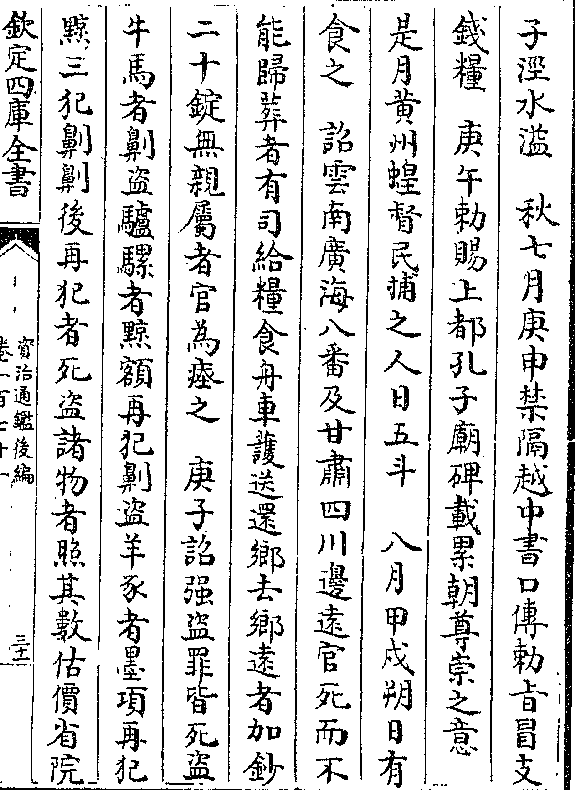 子涇水溢　秋七月庚申禁隔越中書口傳勅㫖冒支
錢糧　庚午勅賜上都孔子廟碑載累朝尊崇之意
是月黄州蝗督民捕之人日五斗　八月甲戌朔日有
食之　詔雲南廣海八番及甘肅四川邊逺官死而不
能歸葬者有司給糧食舟車護送還鄉去鄉逺者加鈔
二十錠無親屬者官為瘞之　庚子詔强盗罪皆死盗
牛馬者劓盗驢騾者黥額再犯劓盗羊豕者墨項再犯
黥三犯劓劓後再犯者死盗諸物者照其數估價省院
欽定四庫全書
資治通鑑後編
卷一百七十一
三十二